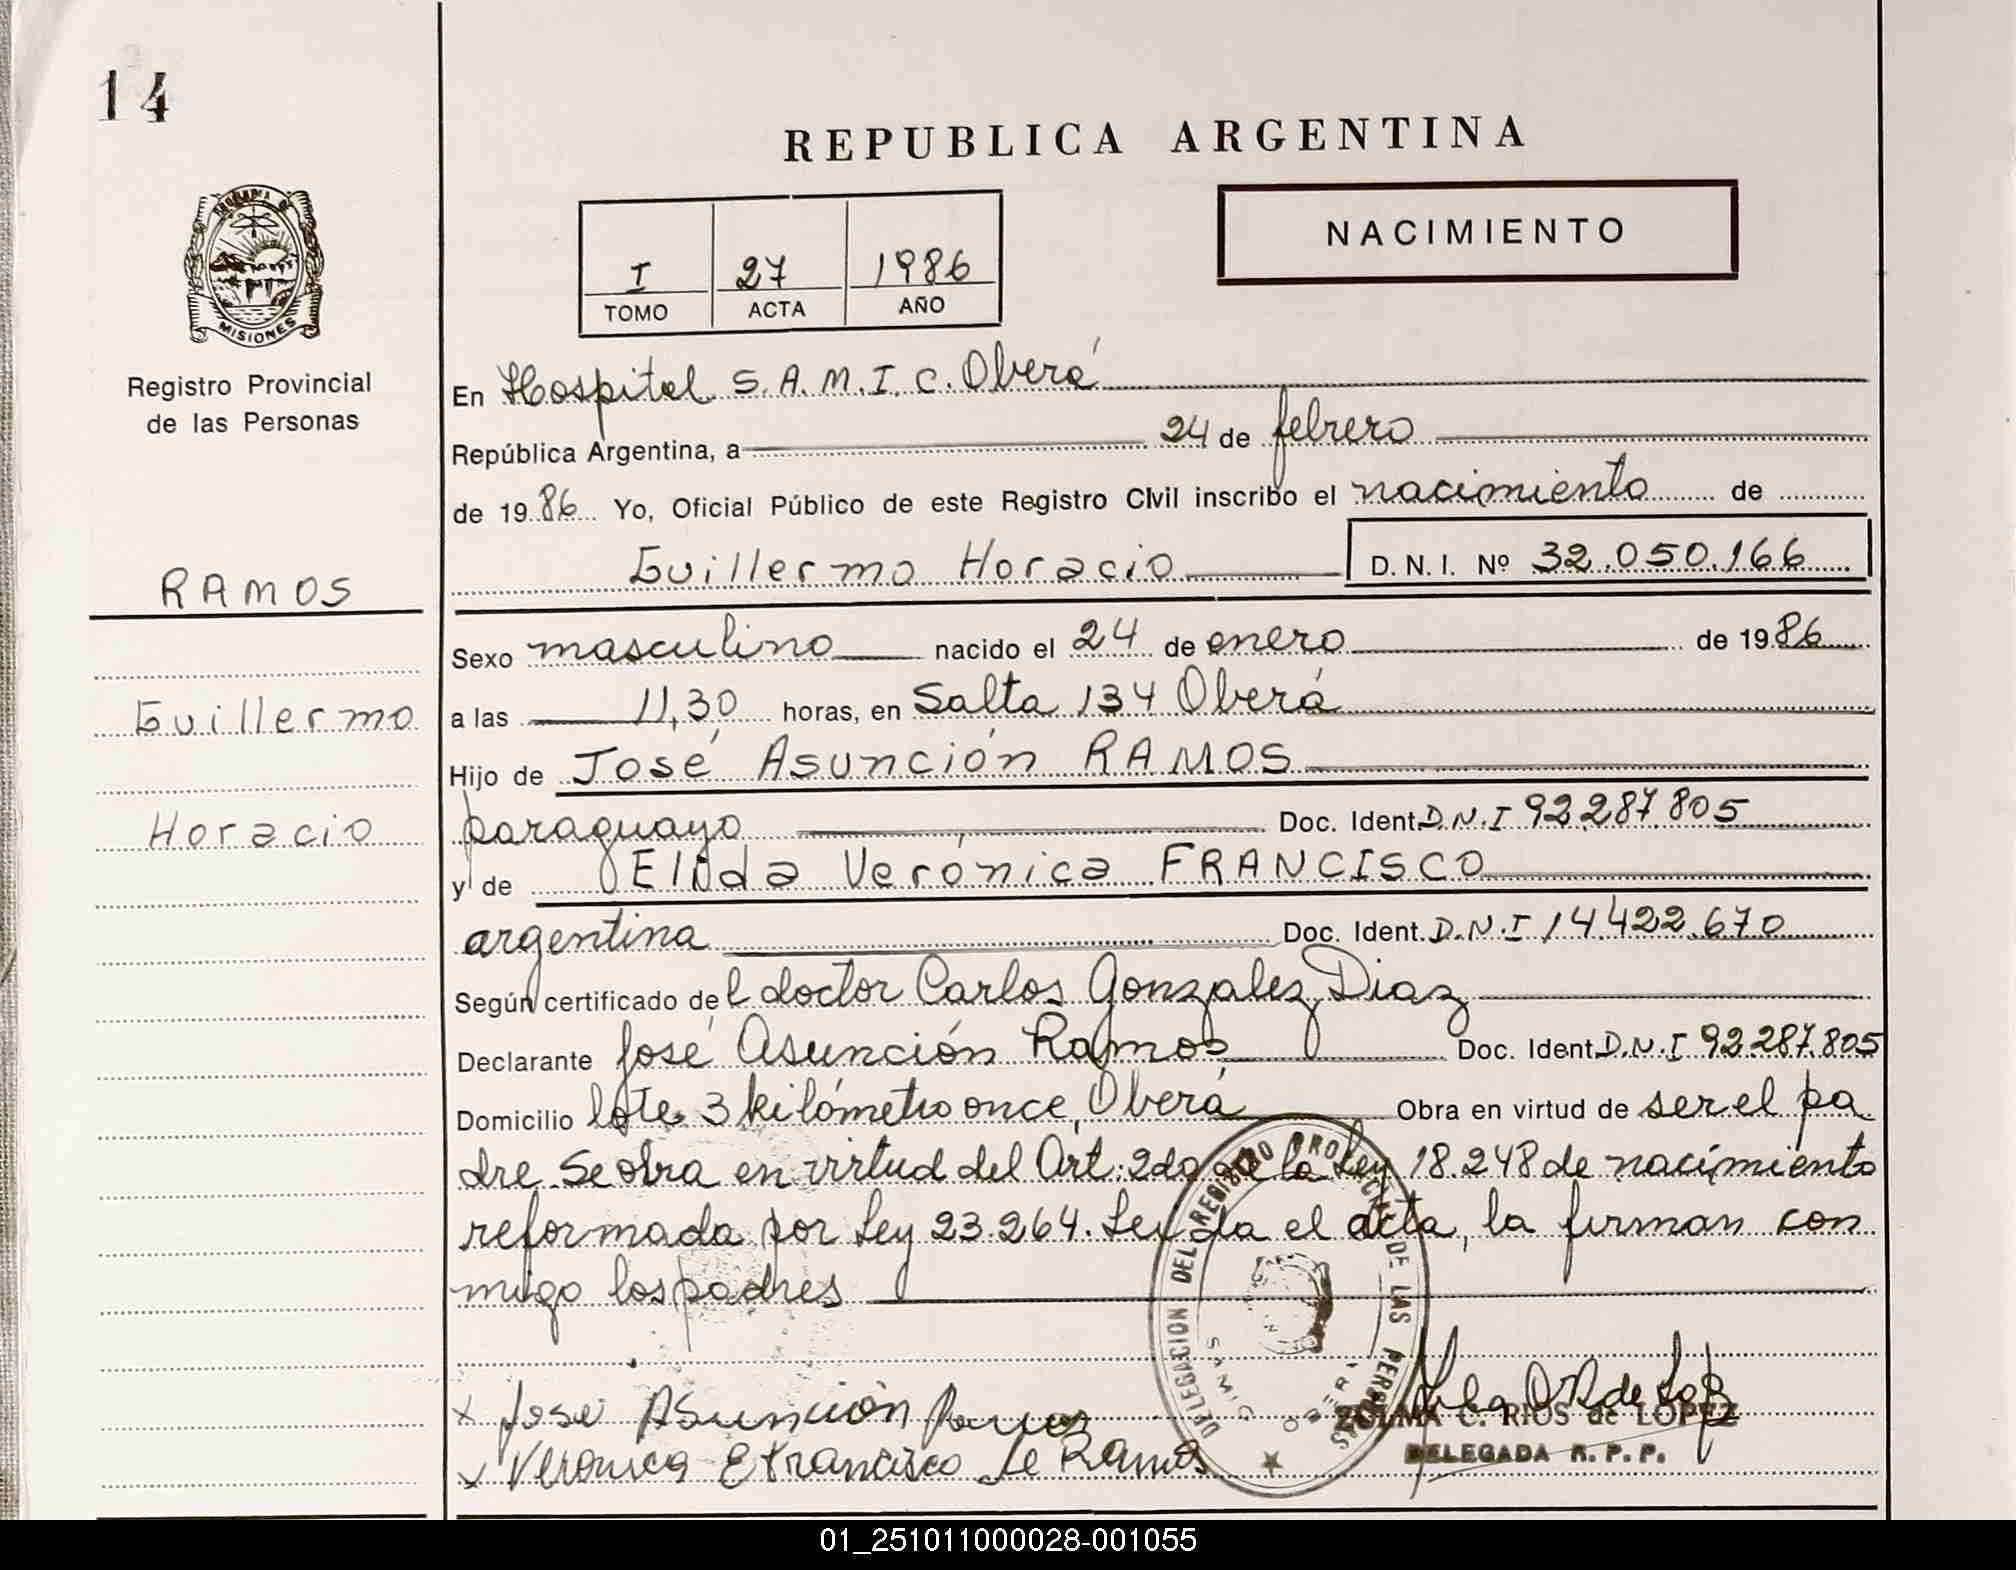 14
REPUBLICA ARGENTINA
NACIMIENTO
I 27 1986
TOMO ACTA AÑO
MISIONES
Registro Provincial
de las Personas
RAMOS
Guillermo
Horacio
En Hospital S.A.M.I.C. Oberá
República Argentina, a 24 de febrero
de 1986 Yo, Oficial Público de este Registro Civil inscribo el nacimiento de
Guillermo Horacio D.N.I. Nº 32.050.166
Sexo masculino nacido el 24 de enero de 1986
a las 11,30 horas, en Salta 134 Oberá
Hijo de José Asunción RAMOS
paraguayo Doc. Ident. D.N.I 92.287.805
y de Elida Verónica FRANCISCO
argentina Doc. Ident. D.N.I 14.422.670
Según certificado del doctor Carlos Gonzalez Diaz
Declarante José Asunción Ramos Doc. Ident. D.N.I 92.287.805
Domicilio lote 3 kilómetro once, Oberá Obra en virtud de ser el pa
dre Se obra en virtud del Art: 2do de la Ley 18.248 de nacimiento
reformada por Ley 23.264. Leída el acta, la firman con
migo los padres
DELEGACION DEL REGISTRO PROVINCIAL DE LAS PERSONAS
SAMIC OBERA
x José Asunción Ramos
x Veronica E Francisco de Ramos
ZULMA C. RIOS de LOPEZ
DELEGADA R.P.P.
01_251011000028-001055